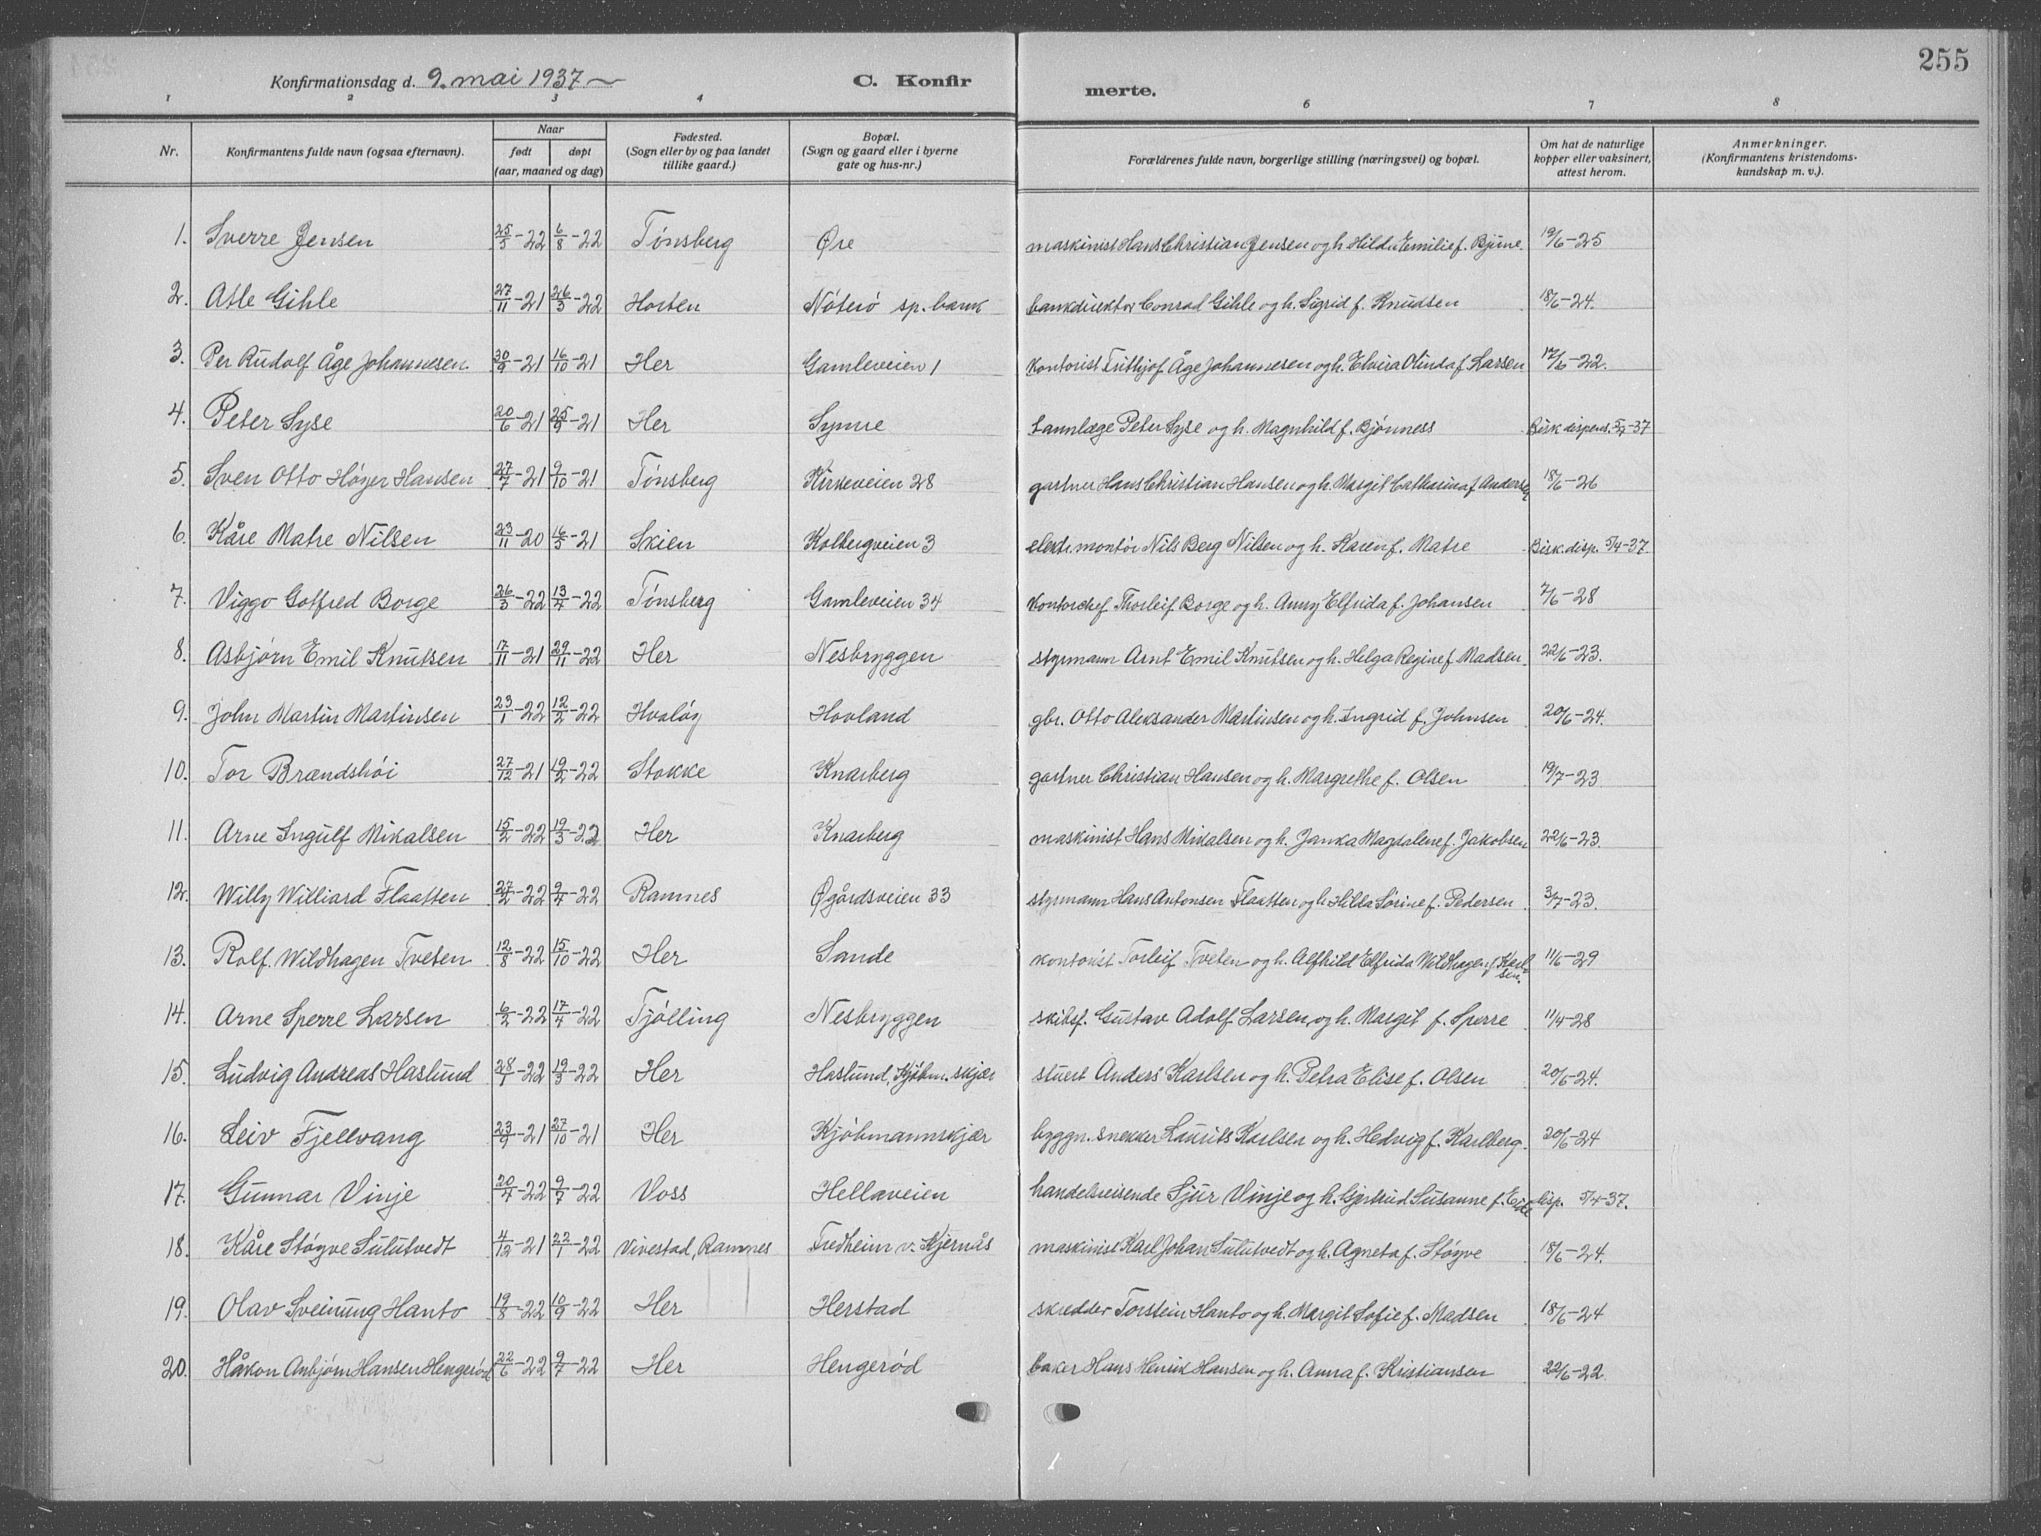 255
Konfirmationsdag d. 9. mai 1937 C. Konfirmerte.
1 2 3 4 6 7 8
Nr. Konfirmantens fulde navn (ogsaa efternavn). Naar født døpt (aar, maaned og dag) Fødested. (Sogn eller by og paa landet tillike gaard.) Bopæl. (Sogn og gaard eller i byerne gate og hus-nr.) Forældrenes fulde navn, borgerlige stilling (næringsvei) og bopæl. Om hat de naturlige kopper eller vaksinert, attest herom. Anmerkninger. (Konfirmantens kristendoms-kundskap m. v.).
1. Sverre Jensen 25/5-22 6/8-22 Tønsberg Øre maskinist Hans Christian Jensen og h. Hilda Emilie f. Bjune 19/6-25
2. Atle Gihle 27/11-21 26/3-22 Horten Nøterø sp. bank bankdirektør Conrad Gihle og h. Sigrid f. Knudsen 18/6-24.
3. Per Rudolf Åge Johannesen 30/9-21 16/10-21 Her Gamleveien 1 kontorist Frithjof Åge Johannesen og h. Elvira Olinda f. Larsen 17/6-22.
4. Peter Syse 20/6-21 25/9-21 Her Synre tannlæge Peter Syse og h. Magnhild f. Bjønness Bisk dispens. 5/4-37
5. Sven Otto Høyer Hansen 27/7-21 9/10-21 Tønsberg Kirkeveien 28 gartner Hans Christian Hansen og h. Margit Catharina f Andersen 18/6-26
6. Kåre Matre Nilsen 23/11-20 16/5-21 Skien Kolbergveien 3 elektr. montør Nils Berg Nilsen og h. Karen f. Matre Bisk. disp. 5/4-37
7. Viggo Gotfred Borge 26/3-22 13/4-22 Tønsberg Gamleveien 34 kontorchef Thorleif Borge og h. Anny Elfrida f. Johansen 7/6-28
8. Asbjørn Emil Knutsen 17/11-21 29/11-22 Her Nesbryggen styrmann Arnt Emil Knutsen og h. Helga Regine f. Madsen 22/6-23.
9. John Martin Martinsen 23/1-22 12/2-22 Hvaløy Hovland gbr. Otto Aleksander Martinsen og h. Ingrid f. Johnsen 20/6-24.
10. Tor Brændshøi 27/12-21 19/2-22 Stokke Knarberg gartner Christian Hansen og h. Margrethe f. Olsen 19/7-23
11. Arne Ingulf Mikalsen 15/2-22 19/3-22 Her Knarberg maskinist Hans Mikalsen og h. Janka Magdalene f. Jakobsen 22/6-23.
12. Willy Williard Flaatten 27/2-22 9/4-22 Ramnes Øgårdsveien 33 styrmann Hans Antonsen Flaatten og h Hilda Sørine f. Pedersen 3/7-23.
13. Rolf Wildhagen Tveten 12/8-22 15/10-22 Her Sande kontorist Torleif Tveten og h. Alfhild Elfrida Wildhagen f. Karlsen. 11/6-29
14. Arne Sperre Larsen 6/2-22 17/4-22 Tjølling Nesbryggen skibsf. Gustav Adolf Larsen og h. Margit f. Sperre 11/4-28
15. Ludvig Andreas Haslund 28/1-22 19/3-22 Her Haslund, Kjøbm. skjær stuert Anders Karlsen og h. Petra Elise f. Olsen 20/6-24.
16. Leiv Fjellvang 23/9-21 27/10-21 Her Kjøbmannskjær byggn. snekker Laurits Karlsen og h. Hedvig f. Karlberg. 20/6-24
17. Gunnar Vinje 20/4-22 9/7-22 Voss Hellaveien handelsreisende Sjur Vinje og h. Gjertrud Susanne f. Eide disp. 5/4-37.
18. Kåre Støyve Sulutvedt 4/12-21 22/1-22 Vivestad, Ramnes Fredheim v. Kjernås maskinist Karl Johan Sulutvedt og h. Agneta f. Støyve 18/6-24.
19. Olav Sveinung Hanto 19/8-22 10/9-22 Her Herstad skredder Torstein Hanto og h. Margit Sofie f. Madsen 18/6-24
20. Håkon Anbjørn Hansen Hengerød 22/6-22 9/7-22 Her Hengerød baker Hans Henrik Hansen og h. Anna f. Kristiansen 22/6-22